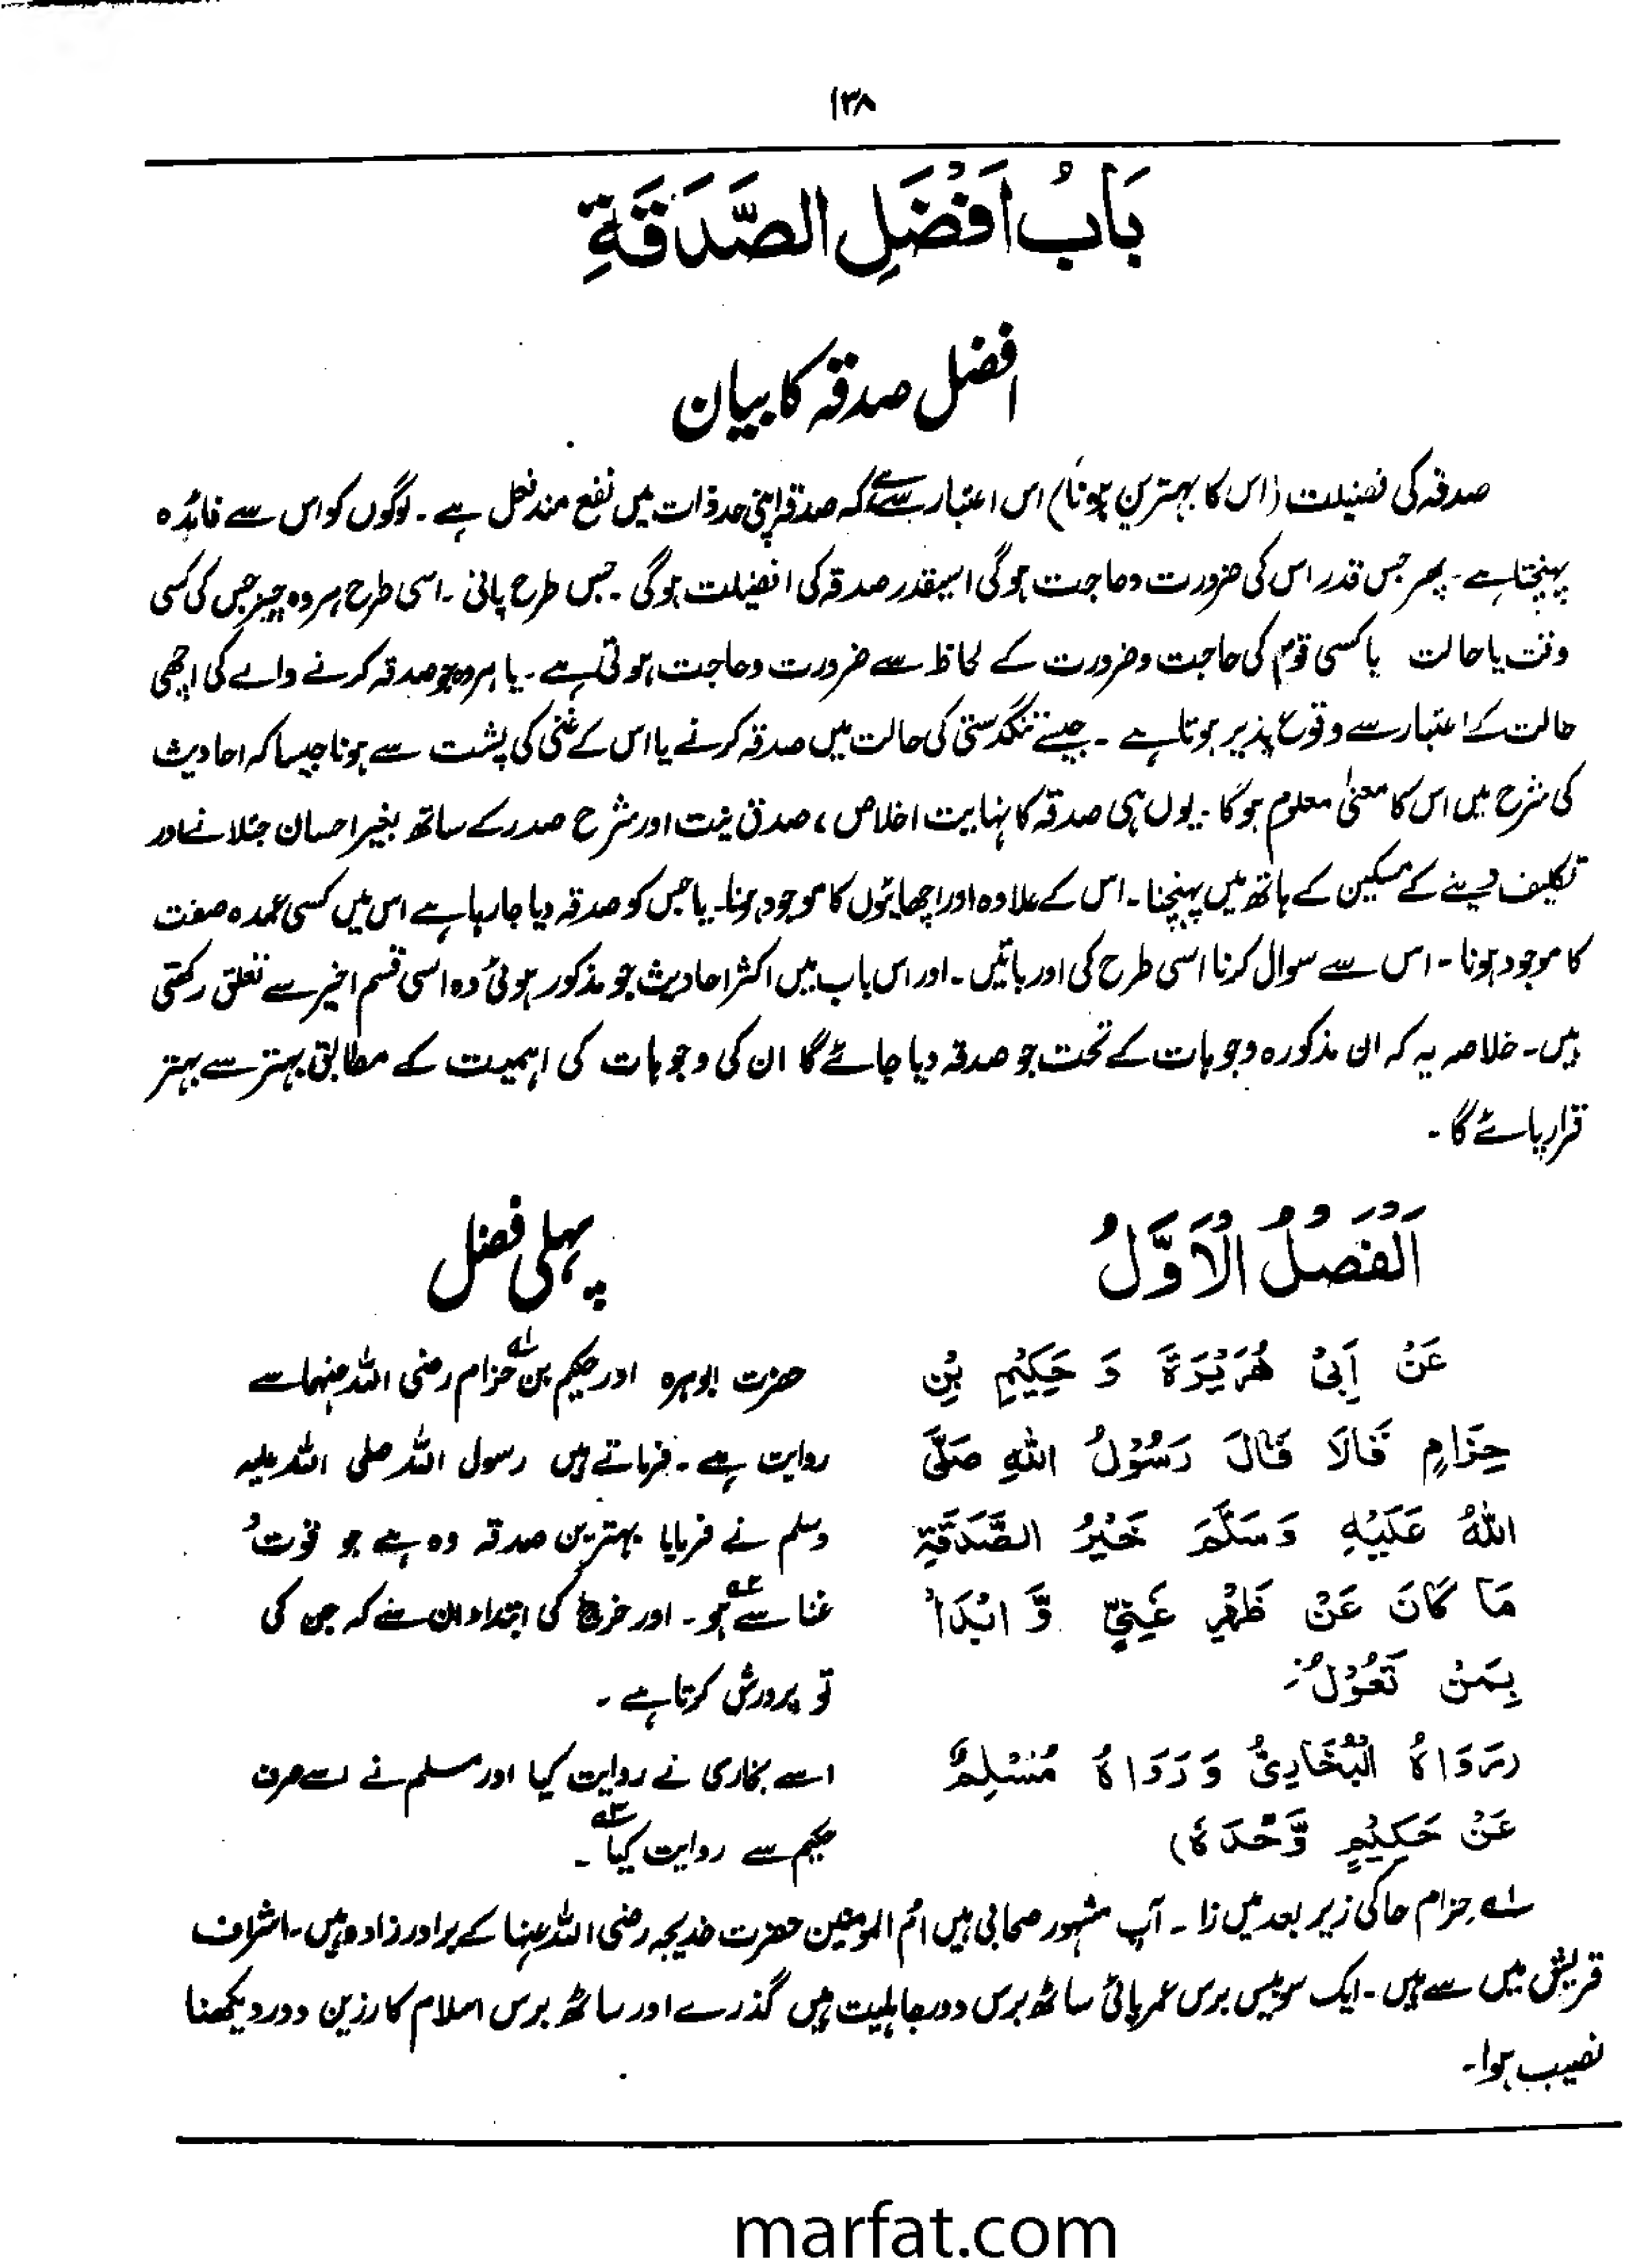 ۱۳۸
بَابُ اَفْضَلِ الصَّدَقَةِ
افضل صدقہ کا بیان
صدقہ کی فضیلت (اس کا بہترین ہونا) اس اعتبار سے ہے کہ صدقہ اپنی حد ذات میں نفع مند فعل ہے ۔ لوگوں کو اس سے فائدہ
پہنچتا ہے ۔ پھر جس قدر اس کی ضرورت وحاجت ہوگی اسیقدر صدقہ کی افضیلت ہوگی ۔ جس طرح پانی ۔ اسی طرح ہر وہ چیز جس کی کسی
وقت یا حالت یا کسی قوم کی حاجت وضرورت کے لحاظ سے ضرورت وحاجت ہوتی ہے ۔ یا ہر وہ جو صدقہ کرنے والے کی اچھی
حالت کے اعتبار سے وقوع پذیر ہوتا ہے ۔ جیسے تنگدستی کی حالت میں صدقہ کرنے یا اس کے غنی کی پشت سے ہونا جیسا کہ احادیث
کی شرح میں اس کا معنیٰ معلوم ہوگا ۔ یوں ہی صدقہ کا نہایت اخلاص ، صدق نیت اور شرح صدر کے ساتھ بغیر احسان جتلانے اور
تکلیف دینے کے مسکین کے ہاتھ میں پہنچنا ۔ اس کے علاوہ اور اچھائیوں کا موجود ہونا ۔ یا جس کو صدقہ دیا جا رہا ہے اس میں کسی عمدہ صفت
کا موجود ہونا ۔ اس سے سوال کرنا اسی طرح کی اور باتیں ۔ اور اس باب میں اکثر احادیث جو مذکور ہوئی وہ اسی قسم اخیر سے تعلق رکھتی
ہیں ۔ خلاصہ یہ کہ ان مذکورہ وجوہات کے تحت جو صدقہ دیا جائے گا ان کی وجوہات کی اہمیت کے مطابق بہتر سے بہتر
قرار پائے گا ۔
اَلْفَصْلُ الْاَوَّلُ
عَنْ اَبِیْ هُرَیْرَةَ وَ حَکِیْمِ بْنِ
حِزَامٍ قَالَا قَالَ رَسُوْلُ اللهِ صَلَّی
اللهُ عَلَیْهِ وَسَلَّمَ خَیْرُ الصَّدَقَةِ
مَا کَانَ عَنْ ظَهْرِ غِنًی وَّ ابْدَاْ
بِمَنْ تَعُوْلُ
(رَوَاهُ الْبُخَارِیُّ وَرَوَاهُ مُسْلِمٌ
عَنْ حَکِیْمٍ وَّحْدَهٗ)
پہلی فصل
حضرت ابوہرہ اور حکیم بن حزام لے رضی اللہ عنہما سے
روایت ہے ۔ فرماتے ہیں رسول اللہ صلی اللہ علیہ
وسلم نے فرمایا بہترین صدقہ وہ ہے جو قوت
غنا سے ۲ے ہو ۔ اور خرچ کی ابتداء ان سے کہ جن کی
تو پرورش کرتا ہے ۔
اسے بخاری نے روایت کیا اور مسلم نے اسے صرف
حکیم سے روایت کیا ۳ے ۔
لے حزام حا کی زیر بعد میں زا ۔ آپ مشہور صحابی ہیں ام المومنین حضرت خدیجہ رضی اللہ عنہا کے برادر زادہ ہیں ۔ اشراف
قریش میں سے ہیں ۔ ایک سو بیس برس عمر پائی ساٹھ برس دور جاہلیت میں گذرے اور ساٹھ برس اسلام کا رزین دور دیکھنا
نصیب ہوا ۔
marfat.com